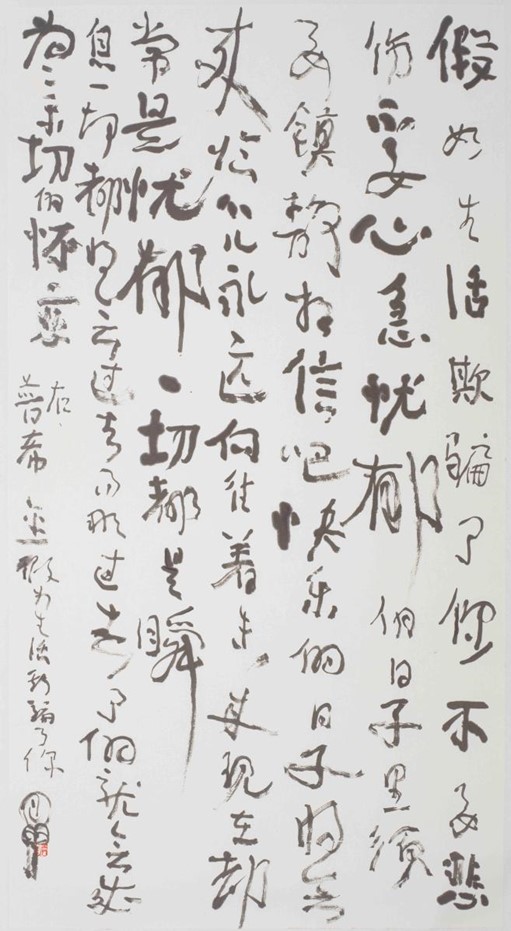 假如生活欺骗了你不要悲
伤不要心急忧郁的日子里须
要镇静相信吧快乐的日子将会
来临心儿永远向往着未来现在却
常是忧郁一切都是瞬
息一切都将会过去而那过去了的就会成
为亲切的怀恋
右
普希金假如生活欺骗了你